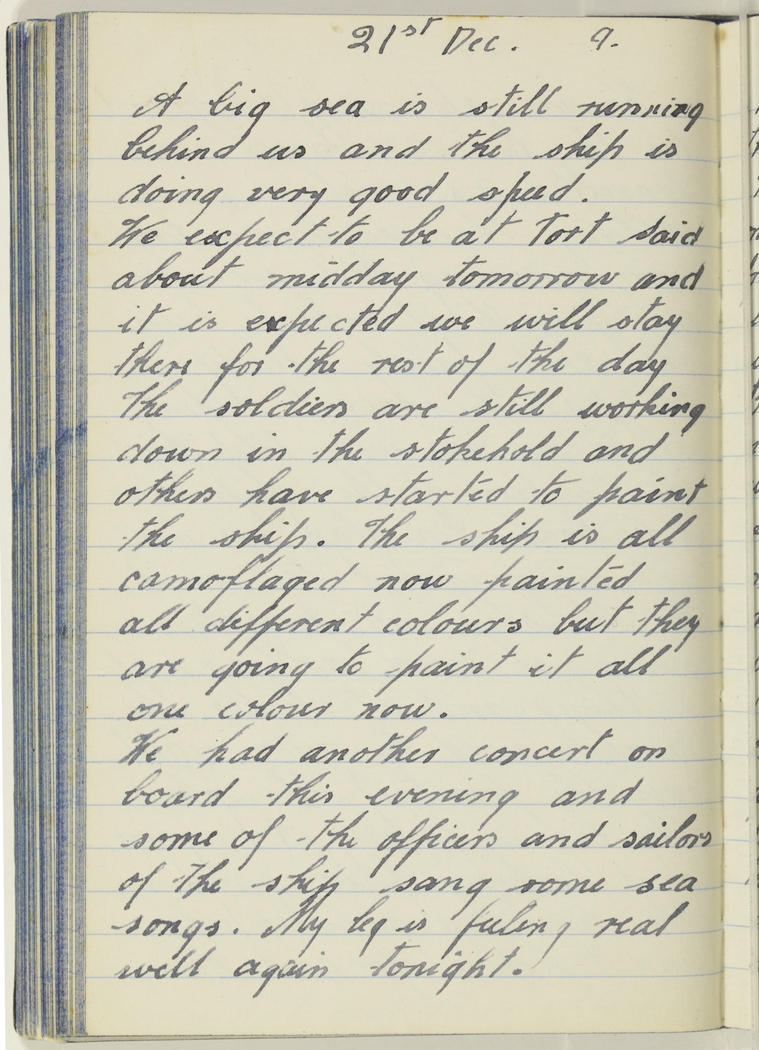 21st Dec. 9.
A big sea is still running
behind us and the ship is
doing very good speed.
We expect to be at Port Said
about midday tomorrow and
it is expected we will stay
there for the rest of the day
The soldiers are still working
down in the stokehold and
others have started to paint
the ship. The ship is all
camoflaged now painted
all different colours but they
are going to paint it all
one colour now.
We had another concert on
board this evening and
some of the officers and sailors
of the ship sang some sea
songs. My leg is feeling real
well again tonight.